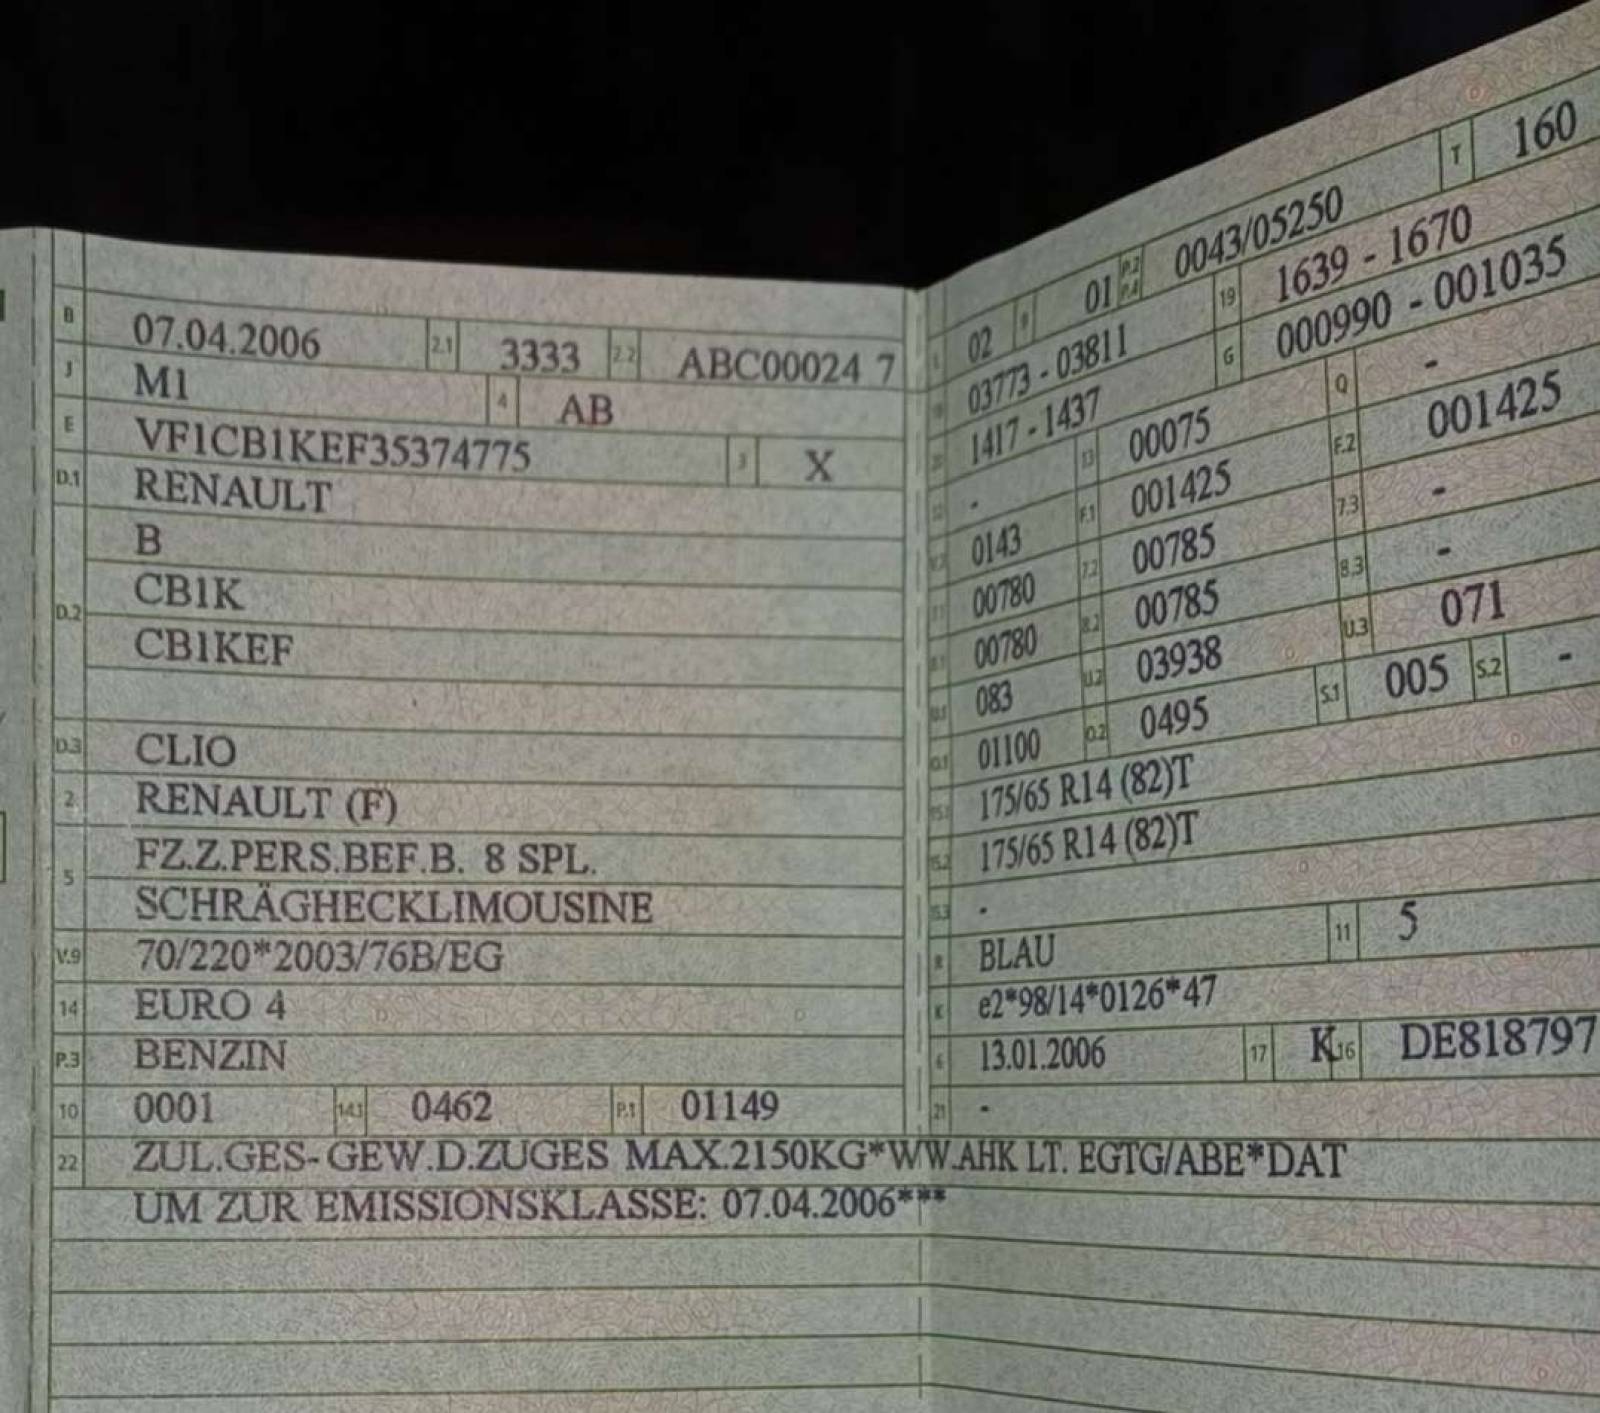 B 07.04.2006 2.1 3333 2.2 ABC00024 7
J M1 4 AB
E VF1CB1KEF35374775 3 X
D.1 RENAULT
B
D.2 CB1K
CB1KEF
D.3 CLIO
2 RENAULT (F)
5 FZ.Z.PERS.BEF.B. 8 SPL.
SCHRÄGHECKLIMOUSINE
V.9 70/220*2003/76B/EG
14 EURO 4
P.3 BENZIN
10 0001 14.1 0462 P.1 01149
22 ZUL.GES-GEW.D.ZUGES MAX.2150KG*WW.AHK LT. EGTG/ABE*DAT
UM ZUR EMISSIONSKLASSE: 07.04.2006***
02 9 01 P.2 P.4 0043/05250 T 160
18 03773 - 03811 19 1639 - 1670
20 1417 - 1437 G 000990 - 001035
- 13 00075 Q -
V.7 0143 F.1 001425 F.2 001425
7.1 00780 7.2 00785 7.3 -
8.1 00780 8.2 00785 8.3 -
U.1 083 U.2 03938 U.3 071
O.1 01100 O.2 0495 S.1 005 S.2 -
15.1 175/65 R14 (82)T
15.2 175/65 R14 (82)T
15.3 -
R BLAU 11 5
K e2*98/14*0126*47
6 13.01.2006 17 K 16 DE818797
21 -